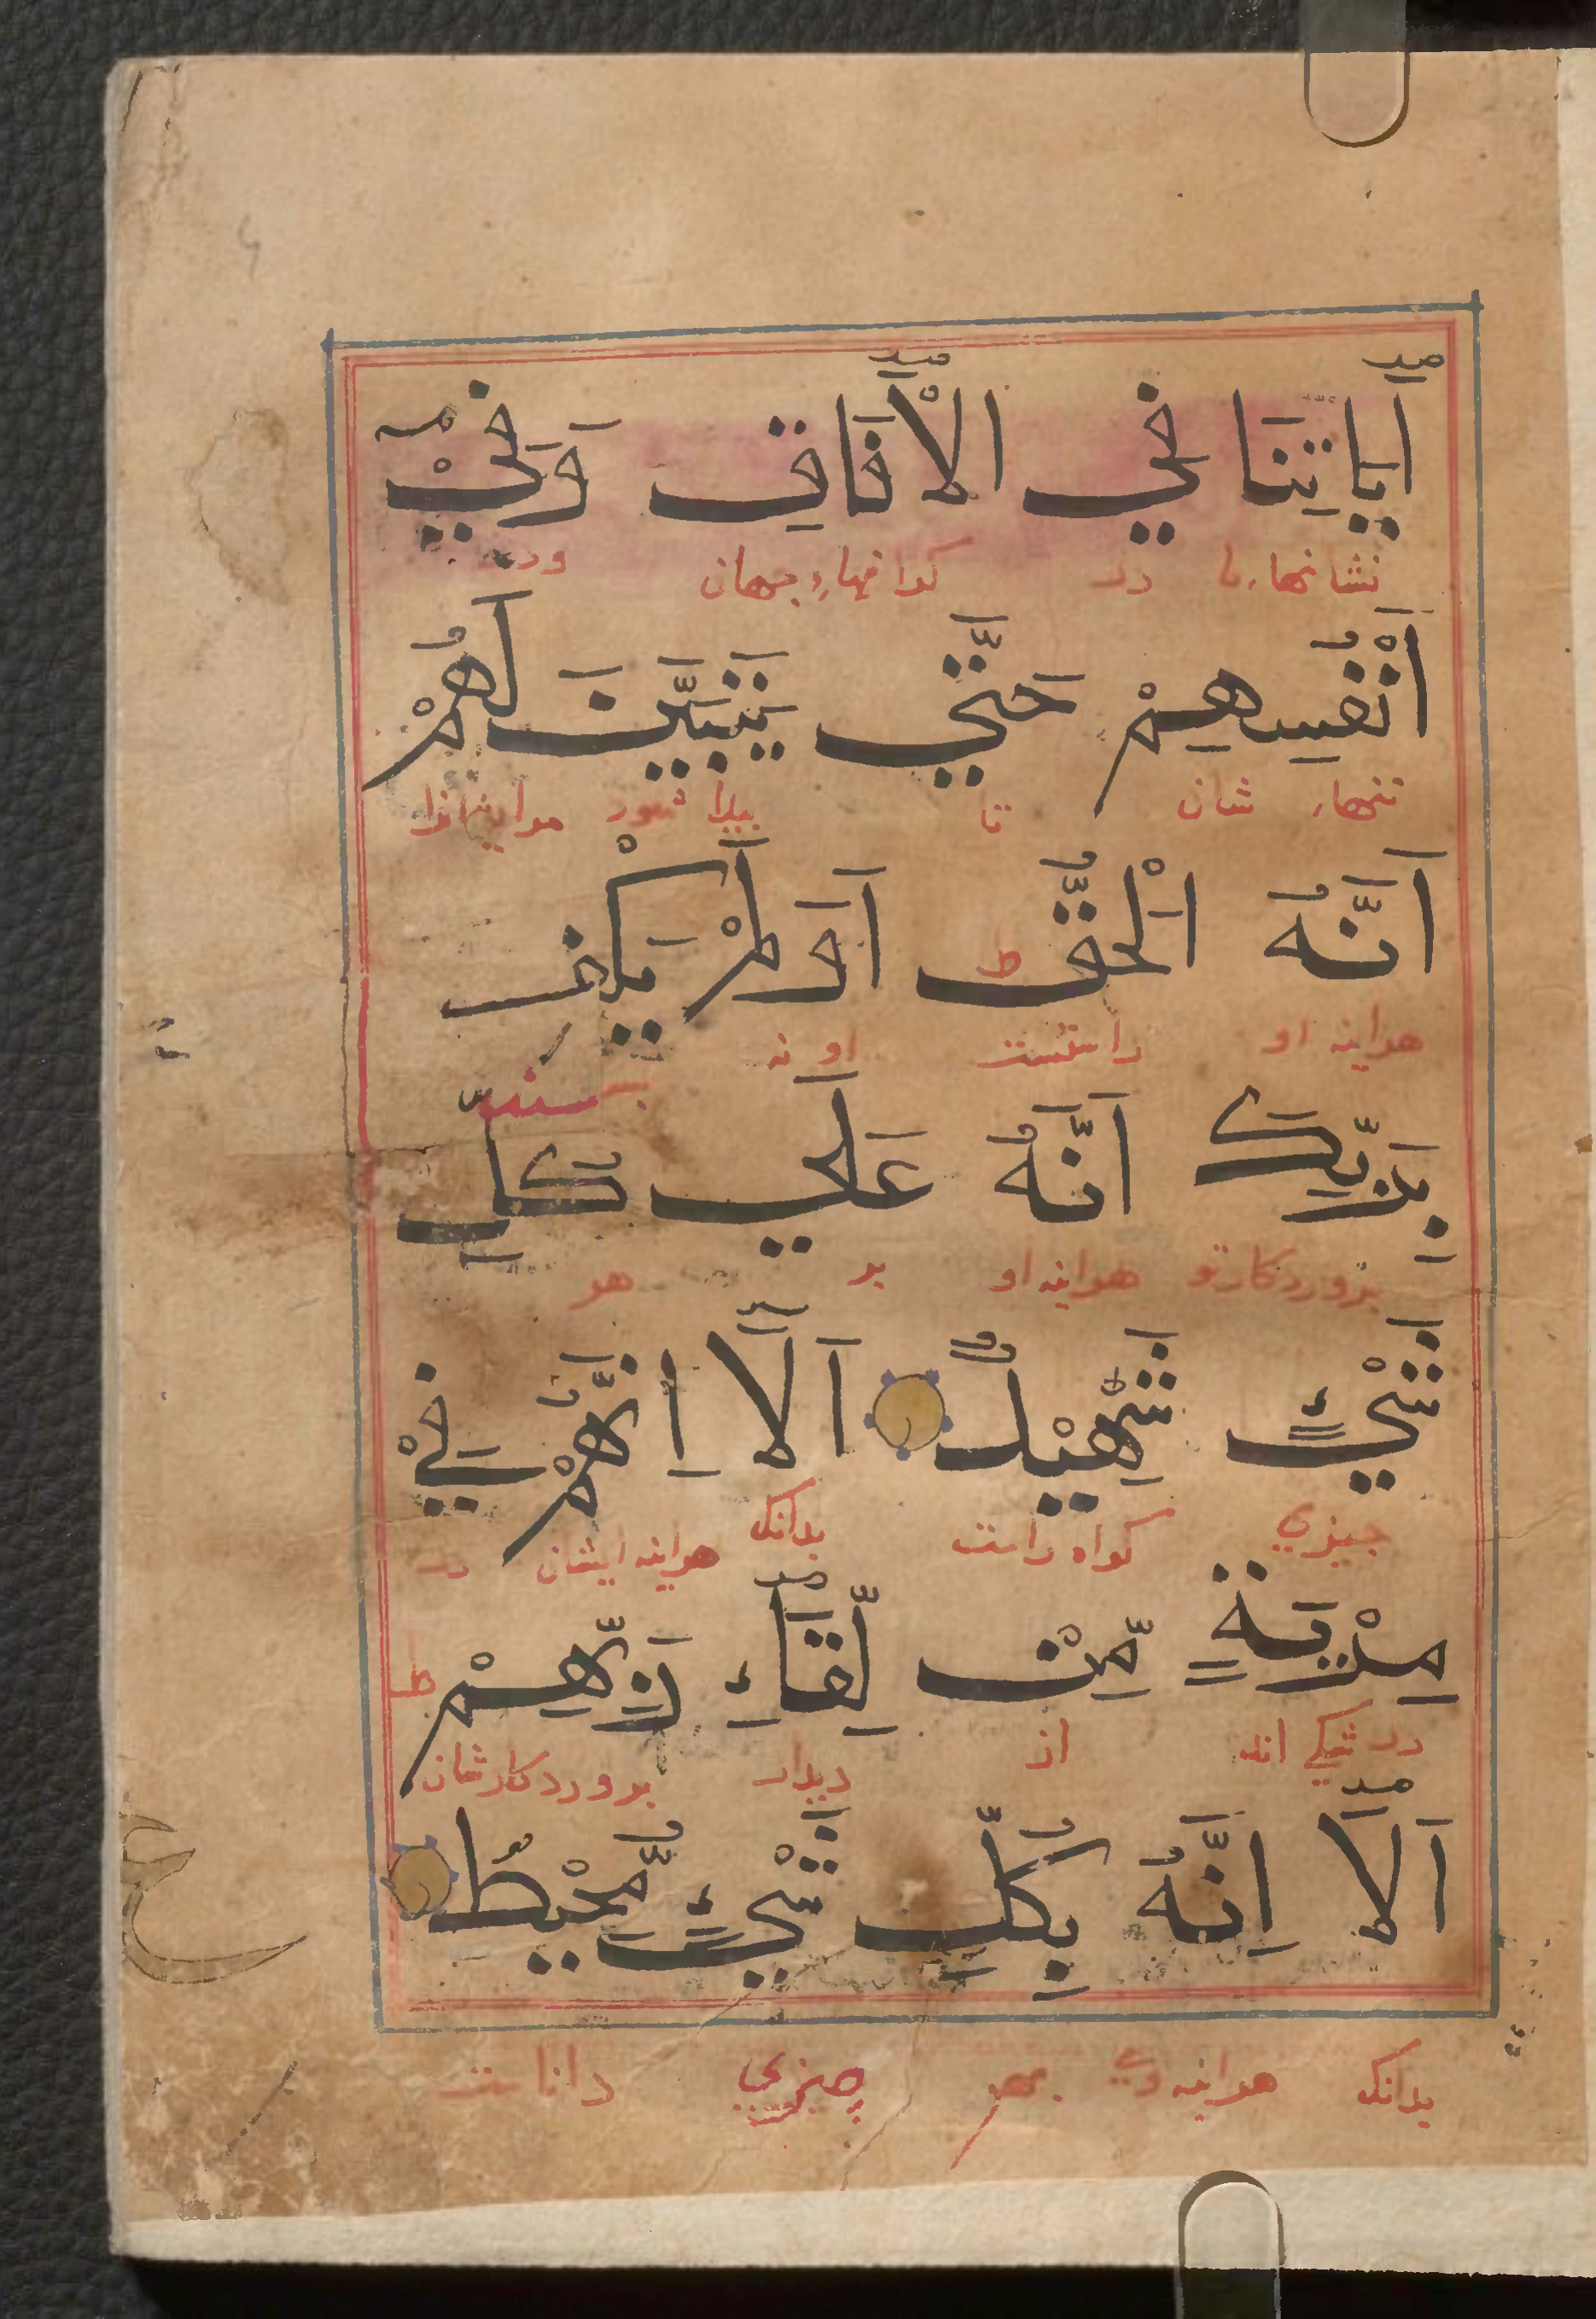 اٰيَاتِنَا فِي الْاٰفَاقِ وَفِيْٓ
نشانهاء ما در كرانهاء جهان ودر
اَنْفُسِهِمْ حَتّٰي يَتَبَيَّنَ لَهُمْ
تنهاء شان تا پيدا شود مرايشانرا
اَنَّهُ الْحَقُّ ط اَوَلَمْ يَكْفِ
هراينه او راستست او نه
بسنده
بِرَبِّكَ اَنَّهُ عَلٰي كُلِّ
پروردكار تو هراينه او بر هر
شَيْءٍ شَهِيْدٌ اَلَآ اِنَّهُمْ فِيْ
چيزي كواه راست بدانك هراينه ايشان در
مِرْيَةٍ مِّنْ لِّقَآءِ رَبِّهِمْ ط
در شكي اند از ديدار پروردكار شان
اَلَآ اِنَّهُ بِكُلِّ شَيْءٍ مُّحِيْطٌ
بدانك هراينه وي بهر چيزي داناست